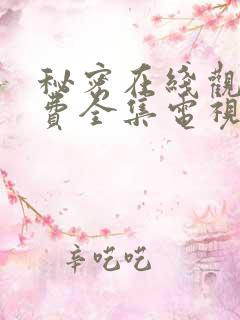 秘密在綫觀
費全集電視
辛吃吃